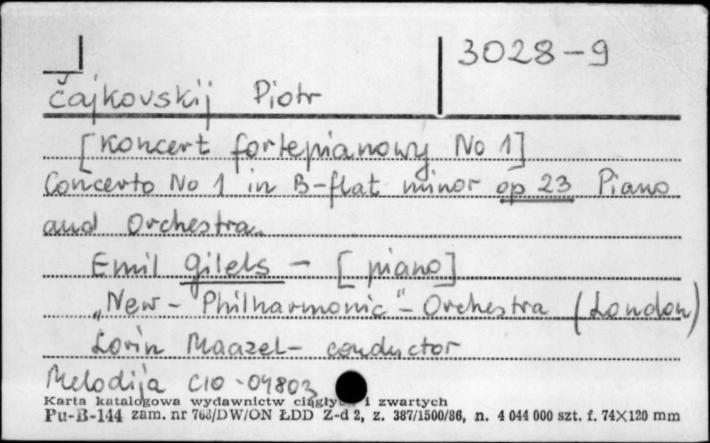 3028-9
Čajkovskij Piotr
[Koncert fortepianowy No 1]
Concerto No 1 in B-flat minor op 23 Piano
and Orchestra.
Emil Gilels - [piano]
„New-Philharmonic"-Orchestra (London)
Lorin Maazel - conductor
Melodija C10-04803
Karta katalogowa wydawnictw ciągłych i zwartych
Pu-B-144 zam. nr 763/DW/ON ŁDD Z-d 2, z. 387/1500/86, n. 4 044 000 szt. f. 74×120 mm